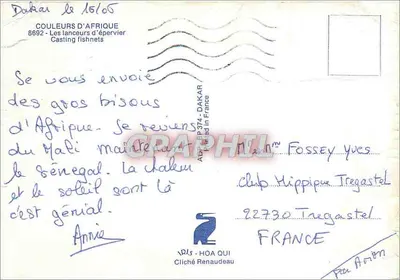 Dakar le 16/06
COULEURS D'AFRIQUE
8692 - Les lanceurs d'épervier
Casting fishnets
Se vous envoie
des gros bisous
d'Afrique. Je reviens
du Mali maintenant
le Sénégal. La chaleur
et le soleil sont là
c'est génial.
Annie
DAKAR
in France
GRAPHIL
M. et Mme Fossey Yves
Club Hippique Tregastel
22730 Tregastel
FRANCE
Par Avion
- HOA QUI
Cliché Renaudeau